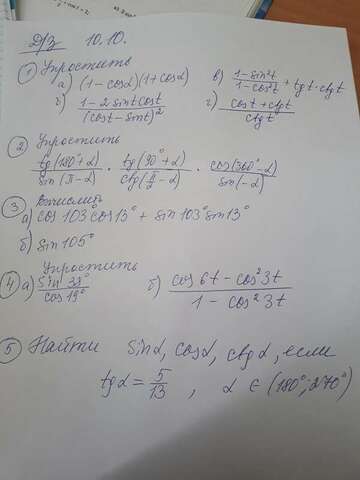 Д/З 10.10.
① Упростить
а) (1-cosα)(1+cosα) в) \frac{1-sin²t}{1-cos²t} + tgt·ctgt
б) \frac{1-2sintcost}{(cost-sint)²} г) \frac{cost+ctgt}{ctgt}
② Упростить
\frac{tg(180°+α)}{sin(π-α)} · \frac{tg(90°+α)}{ctg(\frac{π}{2}-α)} · \frac{cos(360°-α)}{sin(-α)}
③ Вычислить
а) cos 103°cos13° + sin 103°sin13°
б) sin 105°
Упростить
④ а) \frac{sin 38°}{cos 19°} б) \frac{cos 6t - cos²3t}{1 - cos²3t}
⑤ Найти sinα, cosα, ctgα, если
tgα = \frac{5}{13} , α ∈ (180°; 270°)